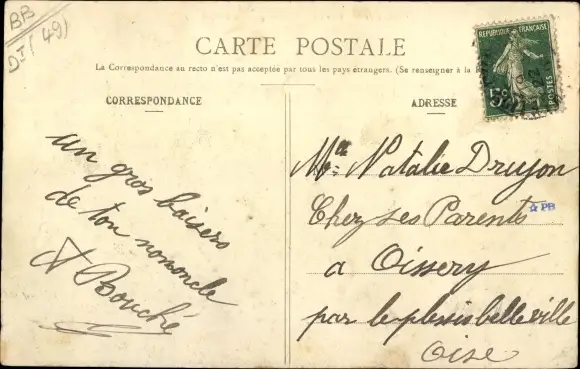 BB
DI (49)
CARTE POSTALE
La Correspondance au recto n'est pas acceptée par tous les pays étrangers. (Se renseigner à la
RÉPUBLIQUE FRANÇAISE
5c
POSTES
CORRESPONDANCE
ADRESSE
un gros baisers
de ton nononcle
A Bouché
Mlle Natalie Druyon
Chez ses Parents
☆ PB
a Oissery
par le plessis belleville
Oise